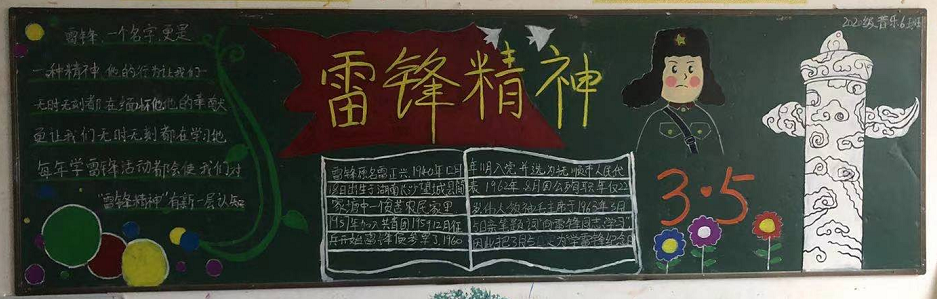 2020级音乐6班
雷锋精神
雷锋 一个名字,更是
一种精神,他的行为让我们
无时无刻都在缅怀他的奉献
更让我们无时无刻都在学习他
每年学雷锋活动都会使我们对
"雷锋精神"有新一层认知
雷锋原名雷正兴 1940年12月
18日出生于湖南长沙望城县简
家塘中一贫苦农民家里
1957年加入共青团 1959年12月征
兵开始 1960
年11月入党并选为抚顺市人民代
表 1962年8月因公殉职年仅22
1963年3月
5日 雷锋同志学习
3月5 学雷锋纪念日
3·5